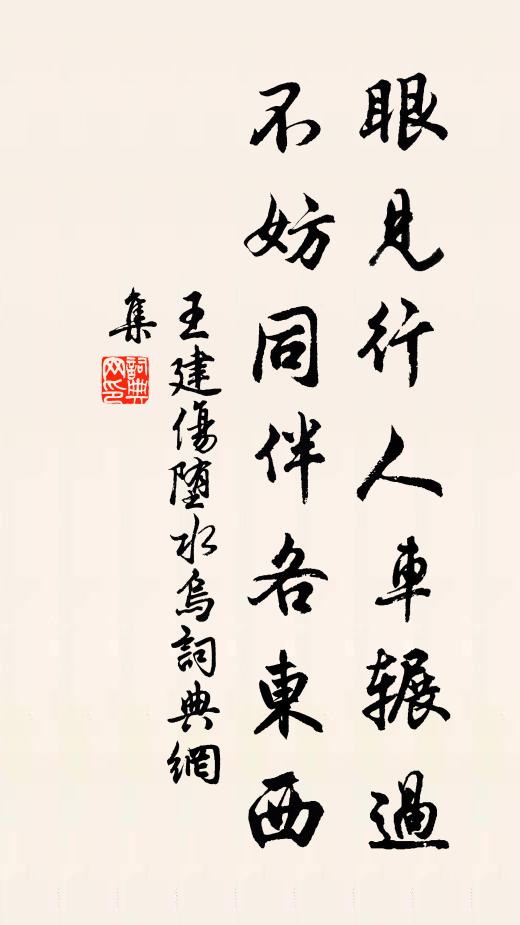 眼見行人車辗過
不妨同伴各東西
王建傷堕水烏詞典網
集
詞典
网印